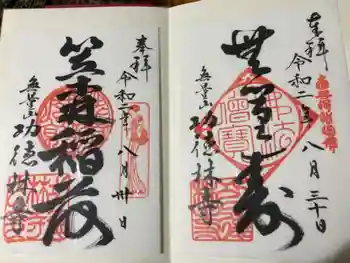 奉拝
令和二年八月三十日
無量寿
無量山
功德林寺
奉拝
令和二年八月卅日
笠森稲荷
無量山
功德林寺